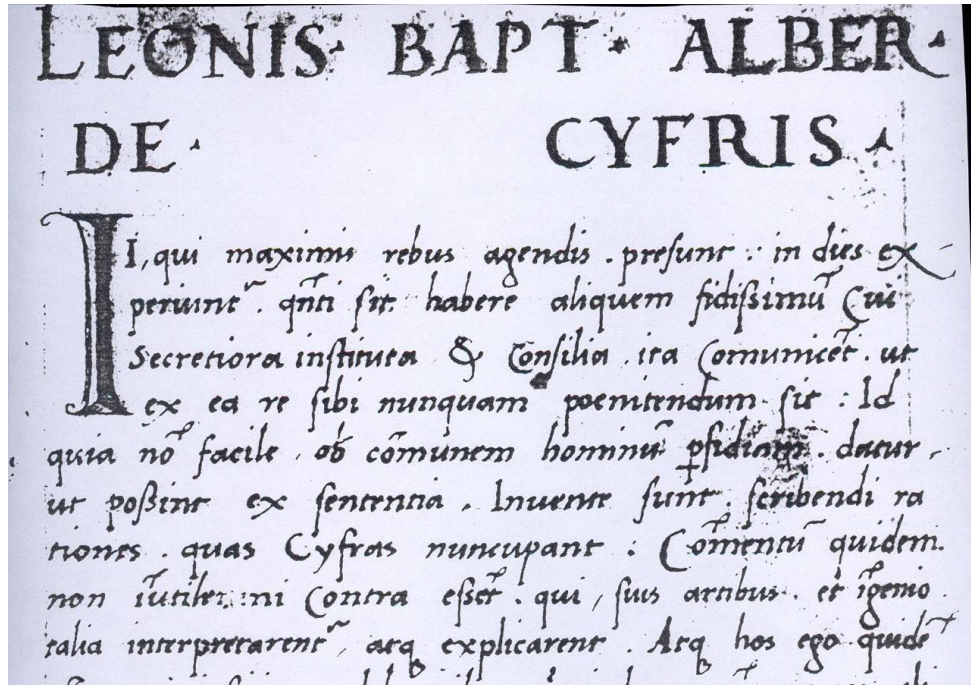 LEONIS · BAPT · ALBER ·
DE · CYFRIS ·
II, qui maximis rebus agendis . presunt : in dies ex-
periunt᷑ . qñti sit habere aliquem fidissimū Cui
Secretiora instituta & Consilia . ita Comunicēt . ut
ex ea re sibi nunquam poenitendum sit : Id
quia nō facile . ob cōmunem hominū ꝑfidiam . datur .
ut poßint ex sententia . Inuente sunt . scribendi ra
tiones . quas Cyfras nuncupant : Cōmentū quidem.
non īutile: ni Contra eßēt . qui , suis artibus . et īgenio .
talia interpretarent᷑ , atq explicarent . Atq hos ego quidē